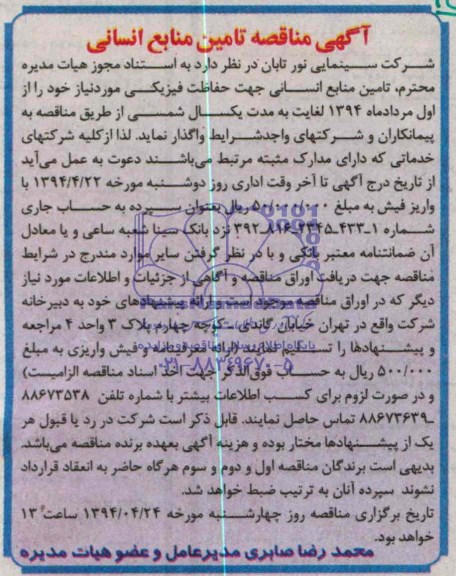 آگهی مناقصه تامین منابع انسانی
شرکت سینمایی نور تابان در نظر دارد به استناد مجوز هیات مدیره
محترم، تامین منابع انسانی جهت حفاظت فیزیکی موردنیاز خود را از
اول مردادماه ۱۳۹۴ لغایت به مدت یکسال شمسی از طریق مناقصه به
پیمانکاران و شرکتهای واجدشرایط واگذار نماید. لذا از کلیه شرکتهای
خدماتی که دارای مدارک مثبته مرتبط می‌باشند دعوت به عمل می‌آید
از تاریخ درج آگهی تا آخر وقت اداری روز دوشنبه مورخه ۱۳۹۴/۴/۲۲ با
واریز فیش به مبلغ ۵۰/۰۰۰/۰۰۰ ریال بعنوان سپرده به حساب جاری
شماره ۱-۴۳۳-۲۳۴۵-۸۱۶-۳۹۲ نزد بانک سینا شعبه ساعی و یا معادل
آن ضمانتنامه معتبر بانکی و با در نظر گرفتن سایر موارد مندرج در شرایط
مناقصه جهت دریافت اوراق مناقصه و آگاهی از جزئیات و اطلاعات مورد نیاز
دیگر که در اوراق مناقصه موجود است و ارائه پیشنهادهای خود به دبیرخانه
شرکت واقع در تهران خیابان گاندی - کوچه چهارم پلاک ۳ واحد ۴ مراجعه
و پیشنهادها را تسلیم نمایند (ارائه معرفینامه و فیش واریزی به مبلغ
۵۰۰/۰۰۰ ریال به حساب فوق‌الذکر جهت اخذ اسناد مناقصه الزامیست)
و در صورت لزوم برای کسب اطلاعات بیشتر با شماره تلفن ۸۸۶۷۳۵۳۸
-۸۸۶۷۳۶۳۹ تماس حاصل نمایند. قابل ذکر است شرکت در رد یا قبول هر
یک از پیشنهادها مختار بوده و هزینه آگهی بعهده برنده مناقصه می‌باشد.
بدیهی است برندگان مناقصه اول و دوم و سوم هرگاه حاضر به انعقاد قرارداد
نشوند سپرده آنان به ترتیب ضبط خواهد شد.
تاریخ برگزاری مناقصه روز چهارشنبه مورخه ۱۳۹۴/۰۴/۲۴ ساعت ۱۳
خواهد بود.
محمد رضا صابری مدیرعامل و عضو هیات مدیره
۰۲۱-۸۸۳۴۹۶۷۰-۵